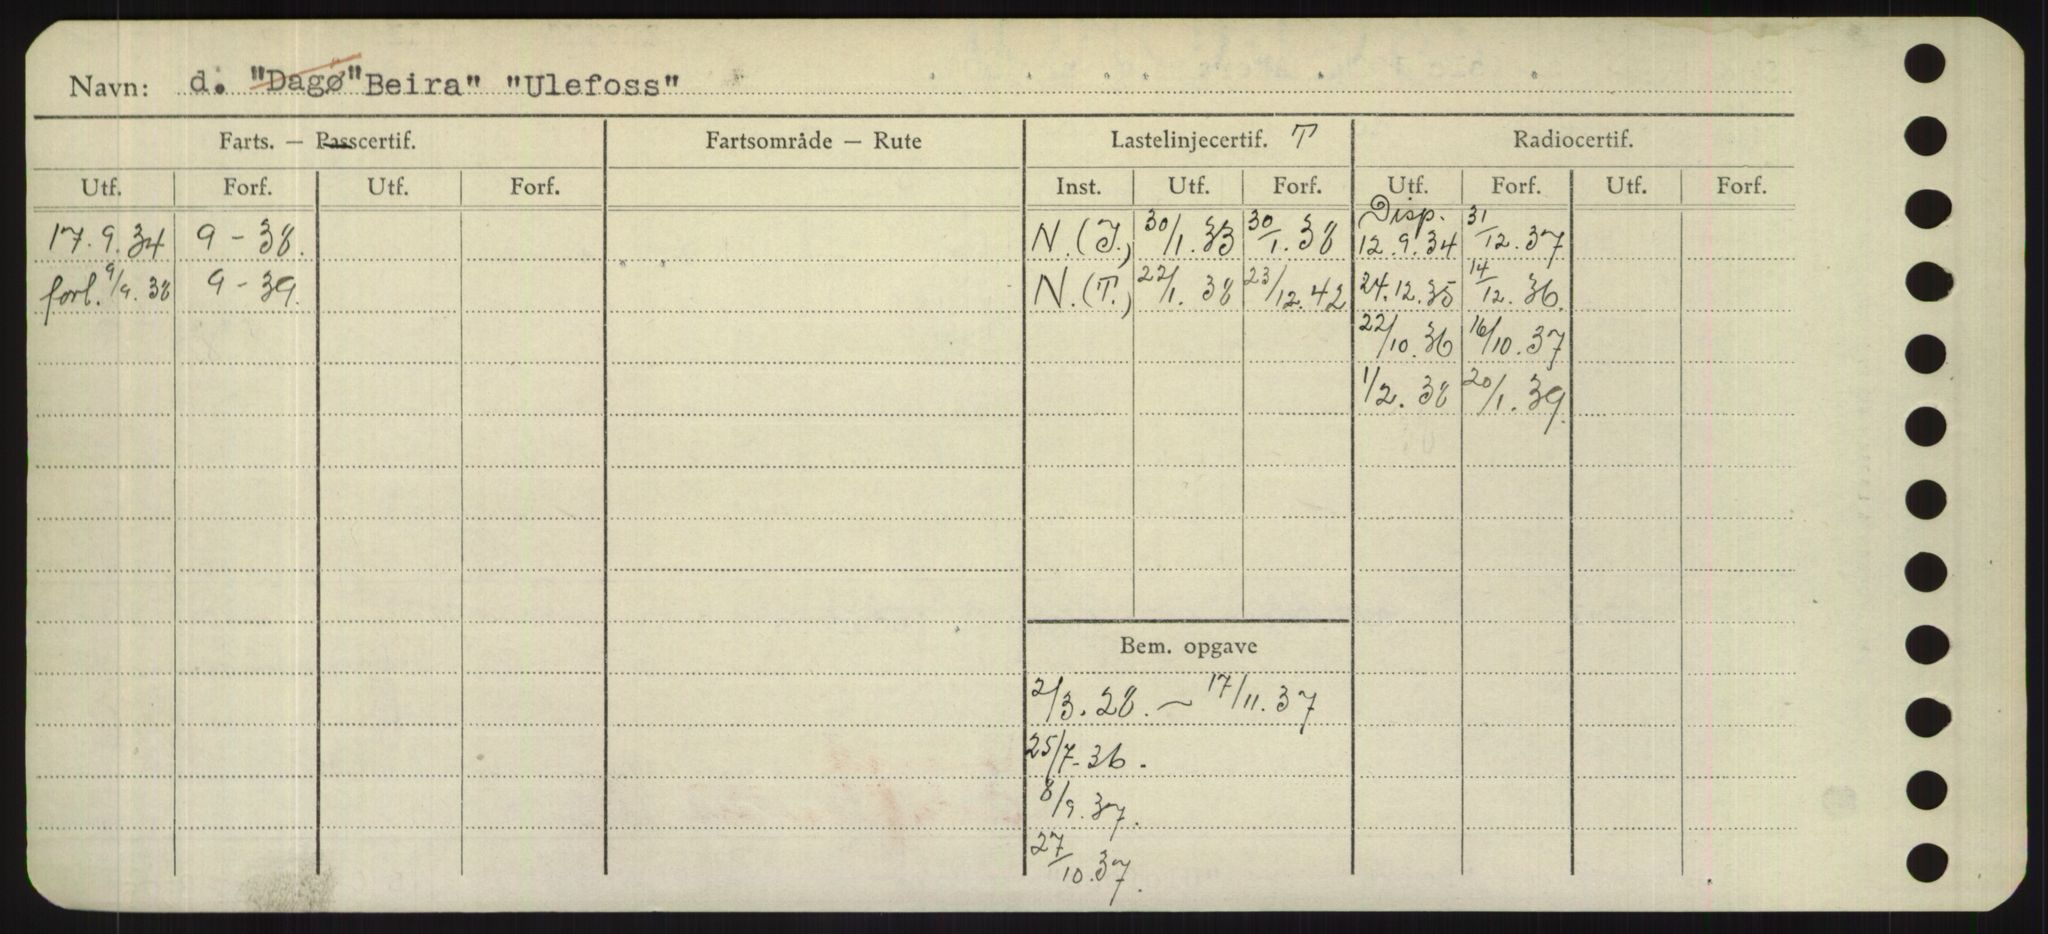 Navn: d. "Dagø" "Beira" "Ulefoss"
Farts. — Passcertif. Fartsområde — Rute Lastelinjecertif. T Radiocertif.
Utf. Forf. Utf. Forf. Inst. Utf. Forf. Utf. Forf. Utf. Forf.
Disp.
17.9.34 9-38. N. (I.) 30/1.33 30/1.38 12.9.34 31/12.37
forl. 9/9.38 9-39. N. (T.) 22/1.38 23/12.42 24.12.35 14/12.36.
22/10.36 16/10.37
1/2.38 20/1.39.
Bem. opgave
2/3.28. — 17/11.37
25/7-36.
8/9.37.
27/10.37.